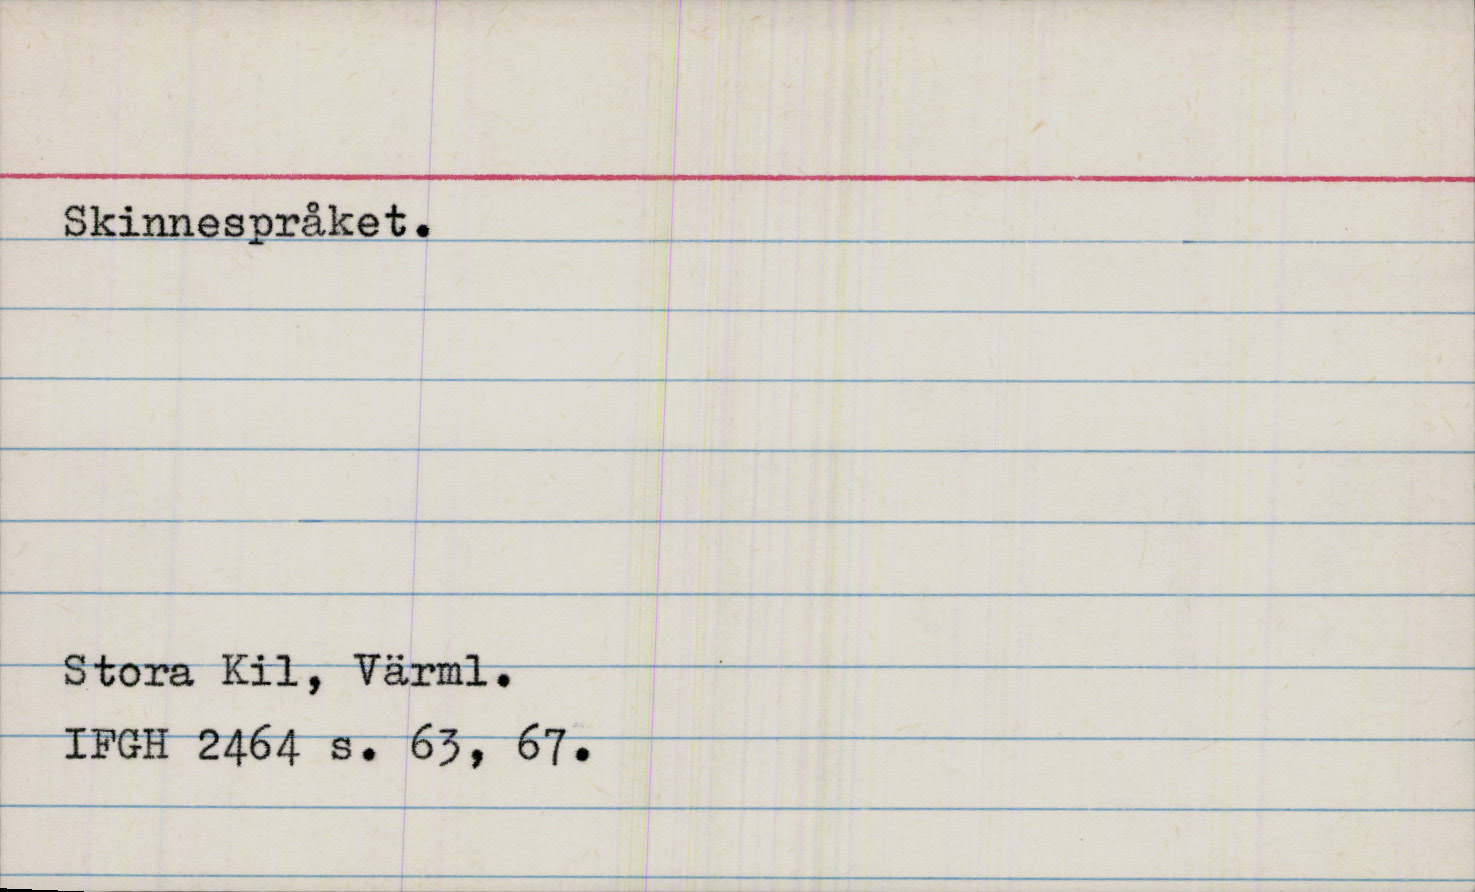 Skinnespråket.
Stora Kil, Värml.
IFGH 2464 s. 63, 67.